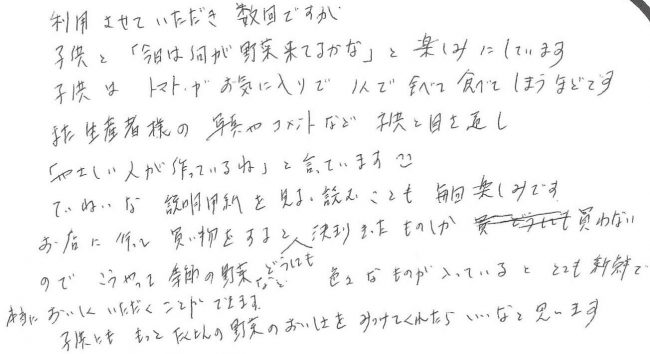 利用させていただき数回ですが
子供と「今日は何が野菜来てるかな」と楽しみにしています
子供はトマトがお気に入りで1人で食べて食べてしまうほどです
また生産者様の写真やコメントなど子供と目を通し
「やさしい人が作っているね」と言っています
ていねいな説明用紙を見る、読むことも毎回楽しみです
お店に行って買い物をするとどうしても決まったものしか買わない
のでこうやって季節の野菜など色々なものが入っているととても新鮮で
本当においしくいただくことができます。
子供にももっとたくさんの野菜のおいしさをみつけてくれたらいいなと思います